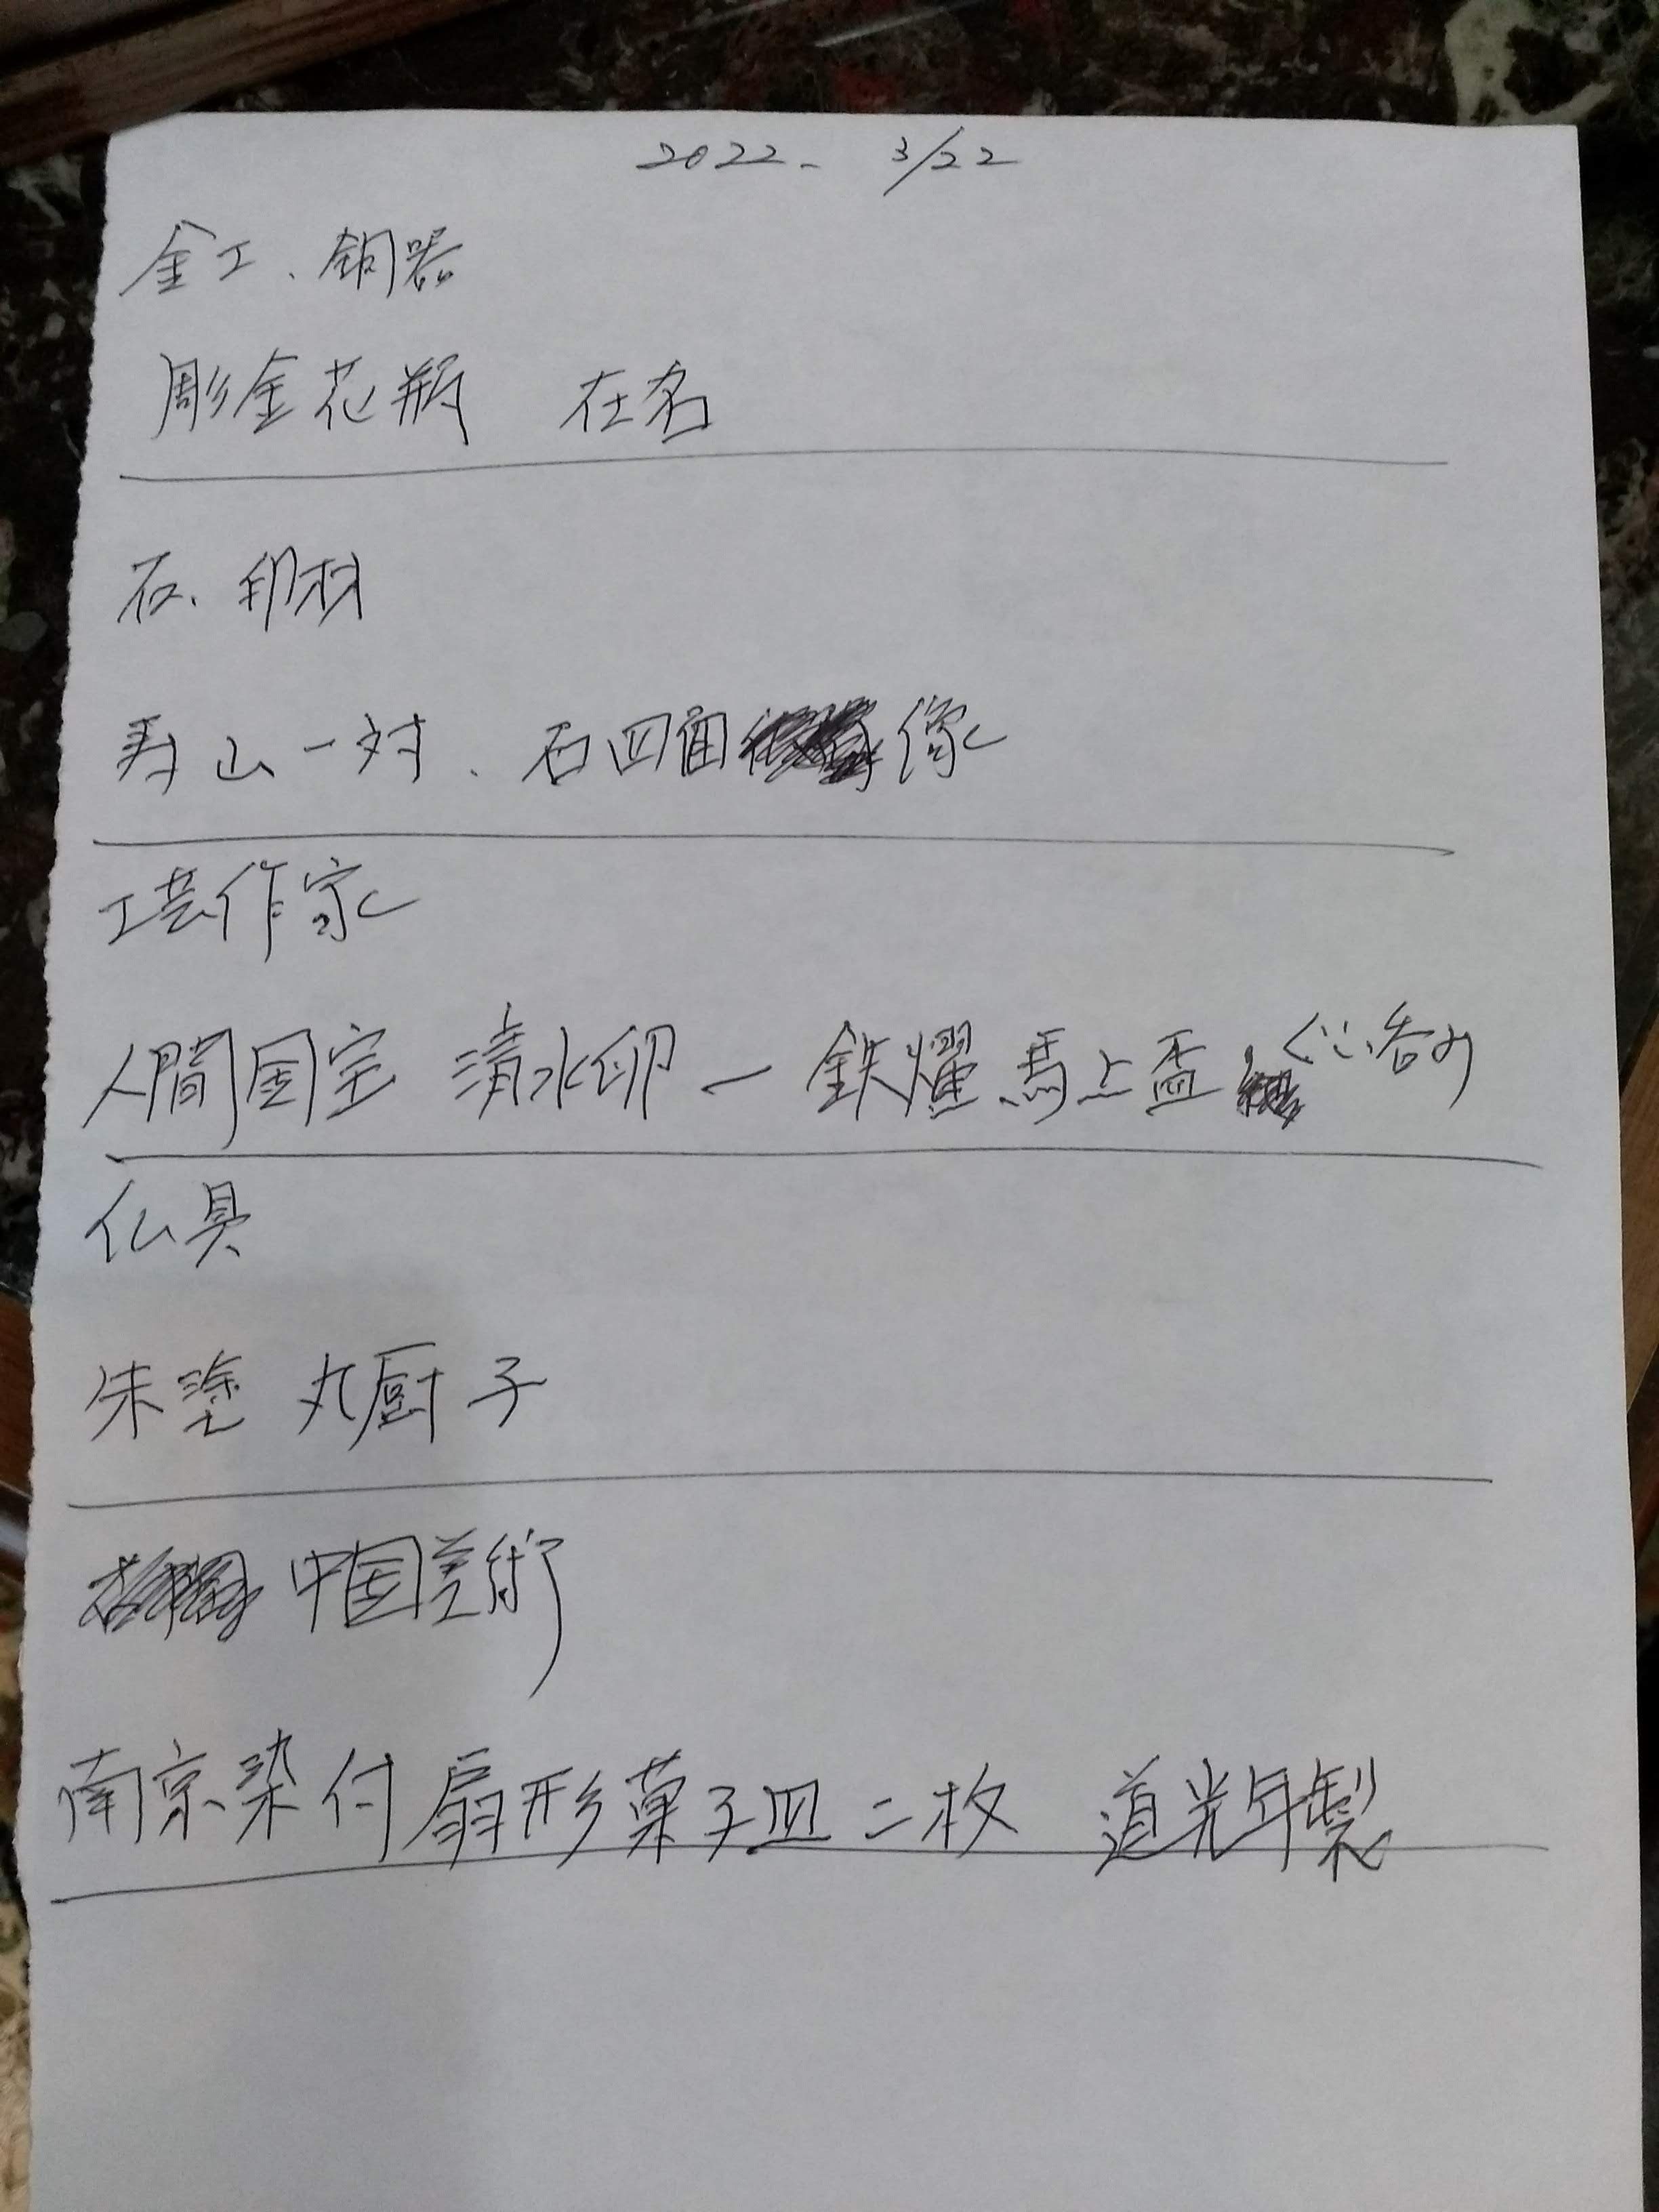 2022. 3/22
金工、銅器
彫金花瓶 在名
石、印材
寿山一対、石四面像
工芸作家
人間国宝 清水卯一 鉄燿馬上盃 ぐい呑み
仏具
朱塗 丸厨子
中国美術
南京染付扇形菓子皿二枚 道光年製